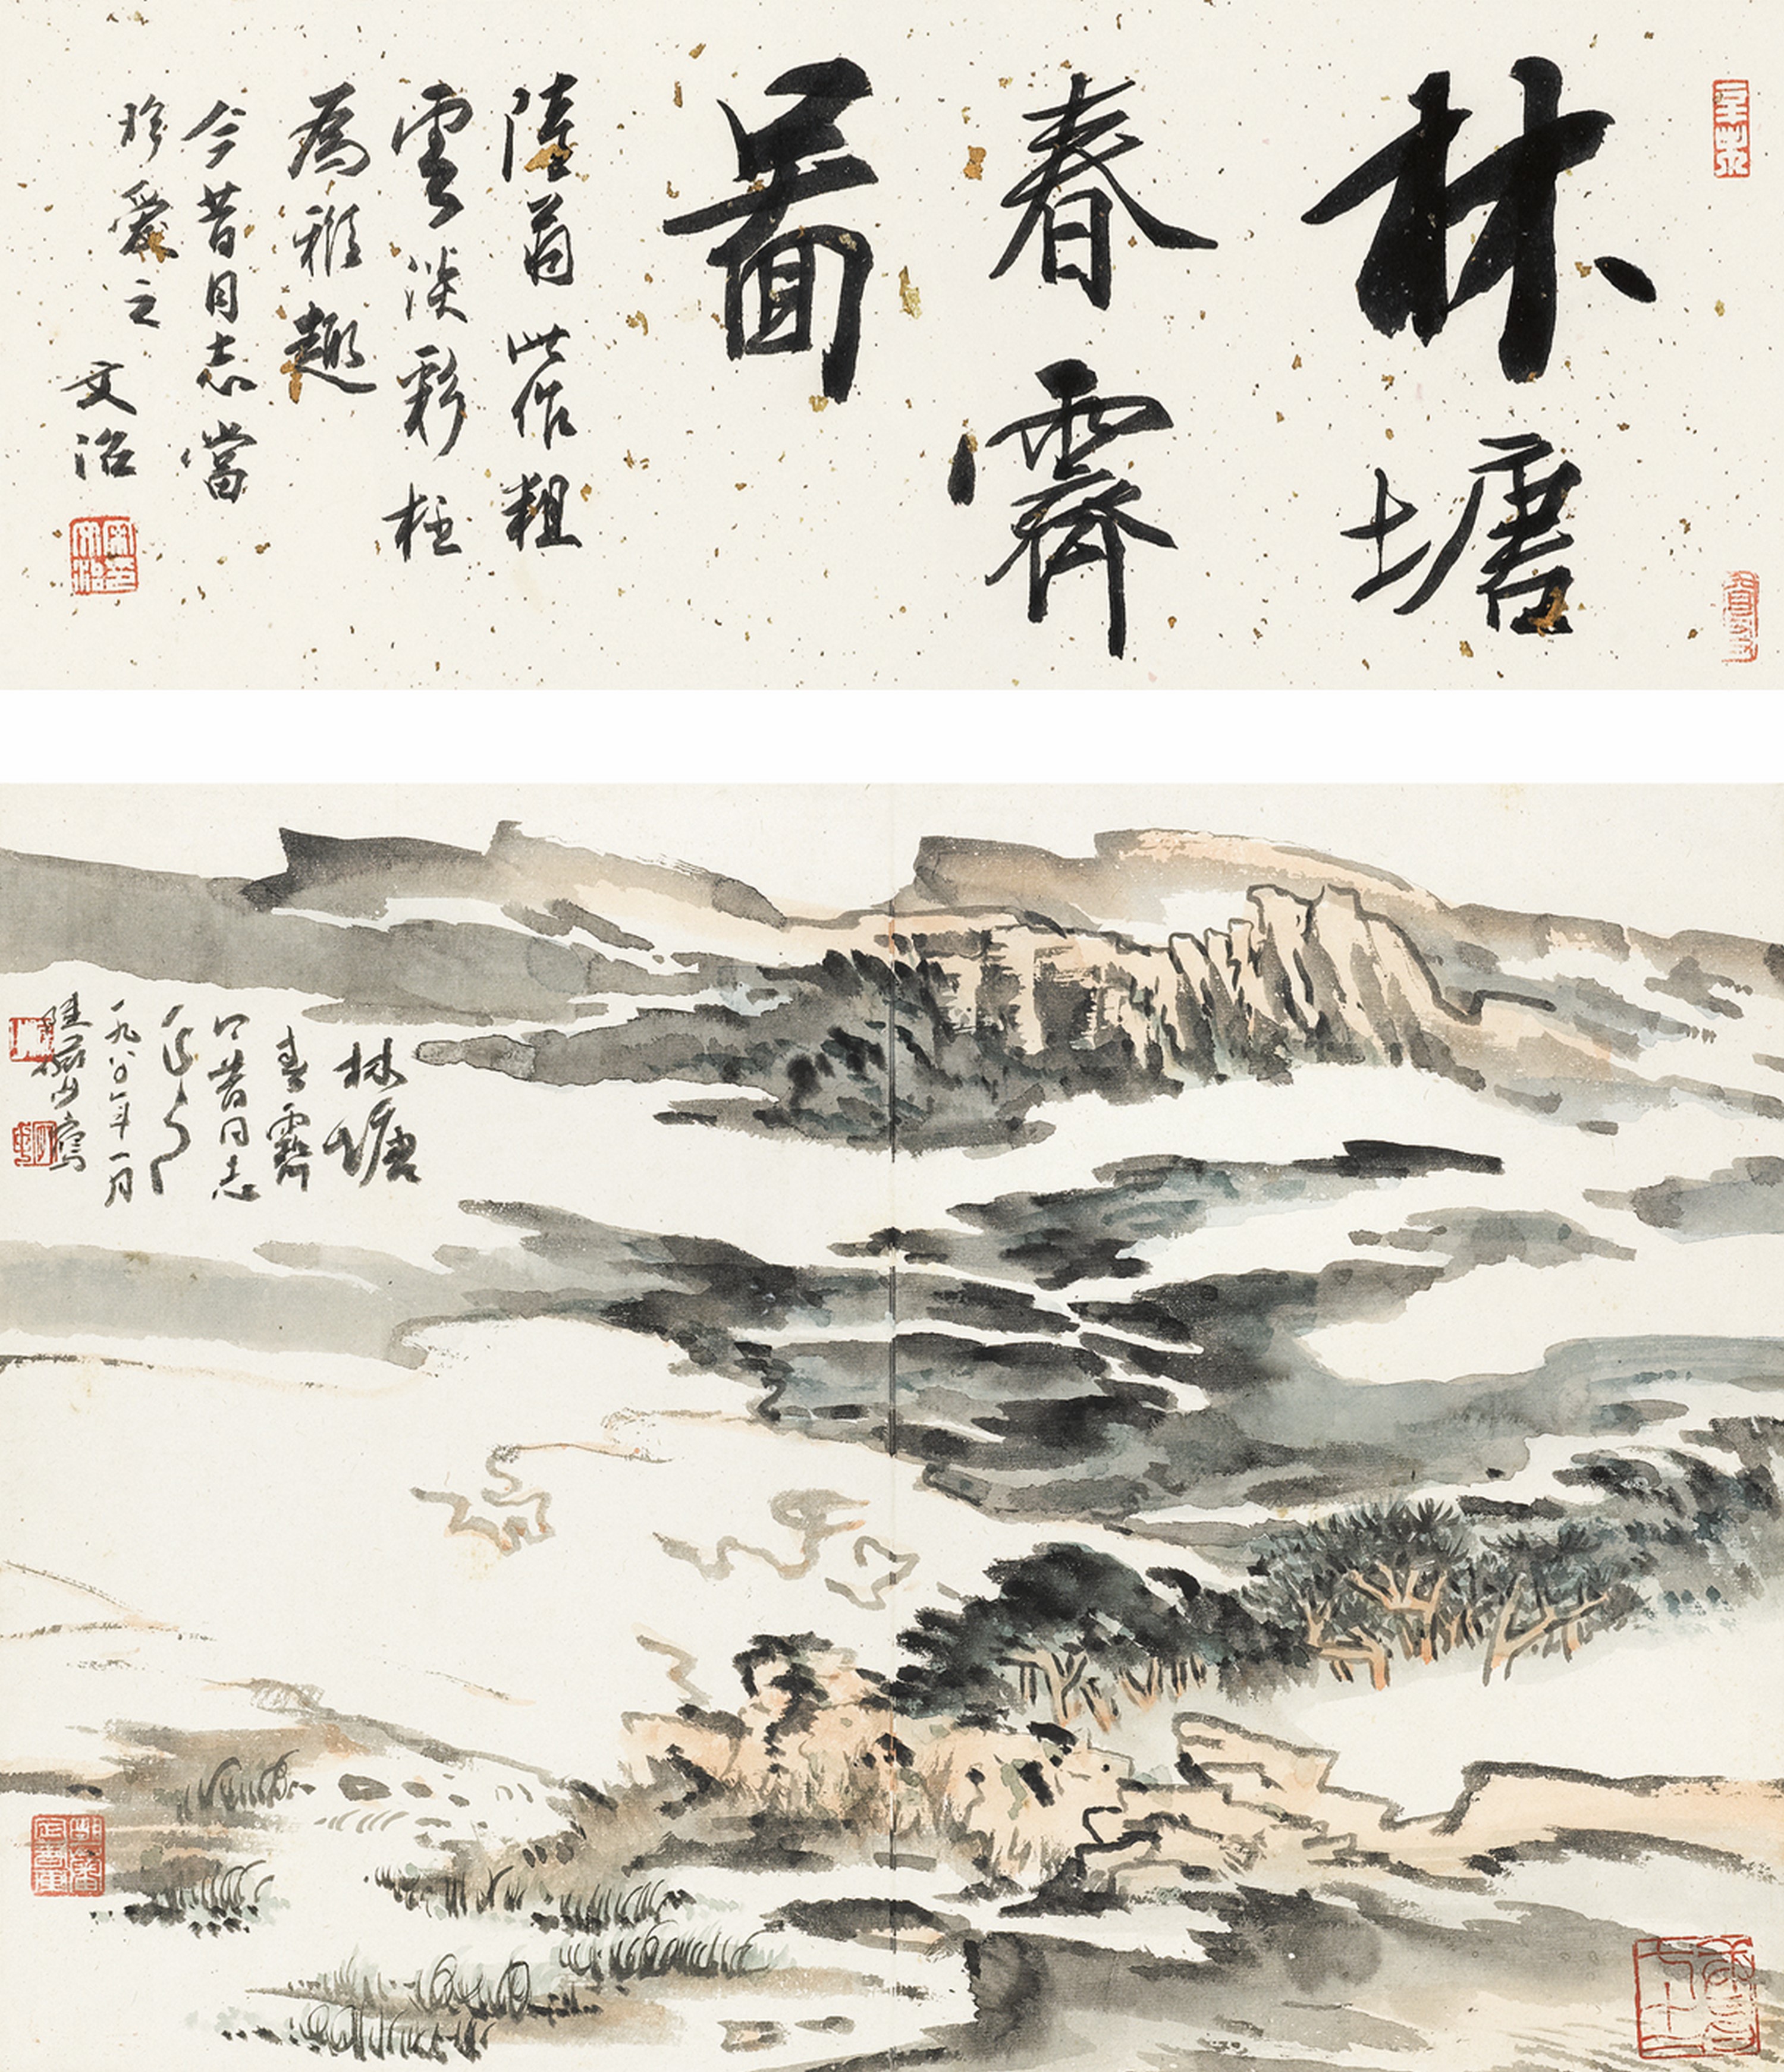 林塘
春霽
啚
陸翁此作粗
雲淡彩極
為雅趣
今昔同志當
珍愛之
文治
林塘
春霽
今昔同志
一九八〇年一月
陸儼少寫